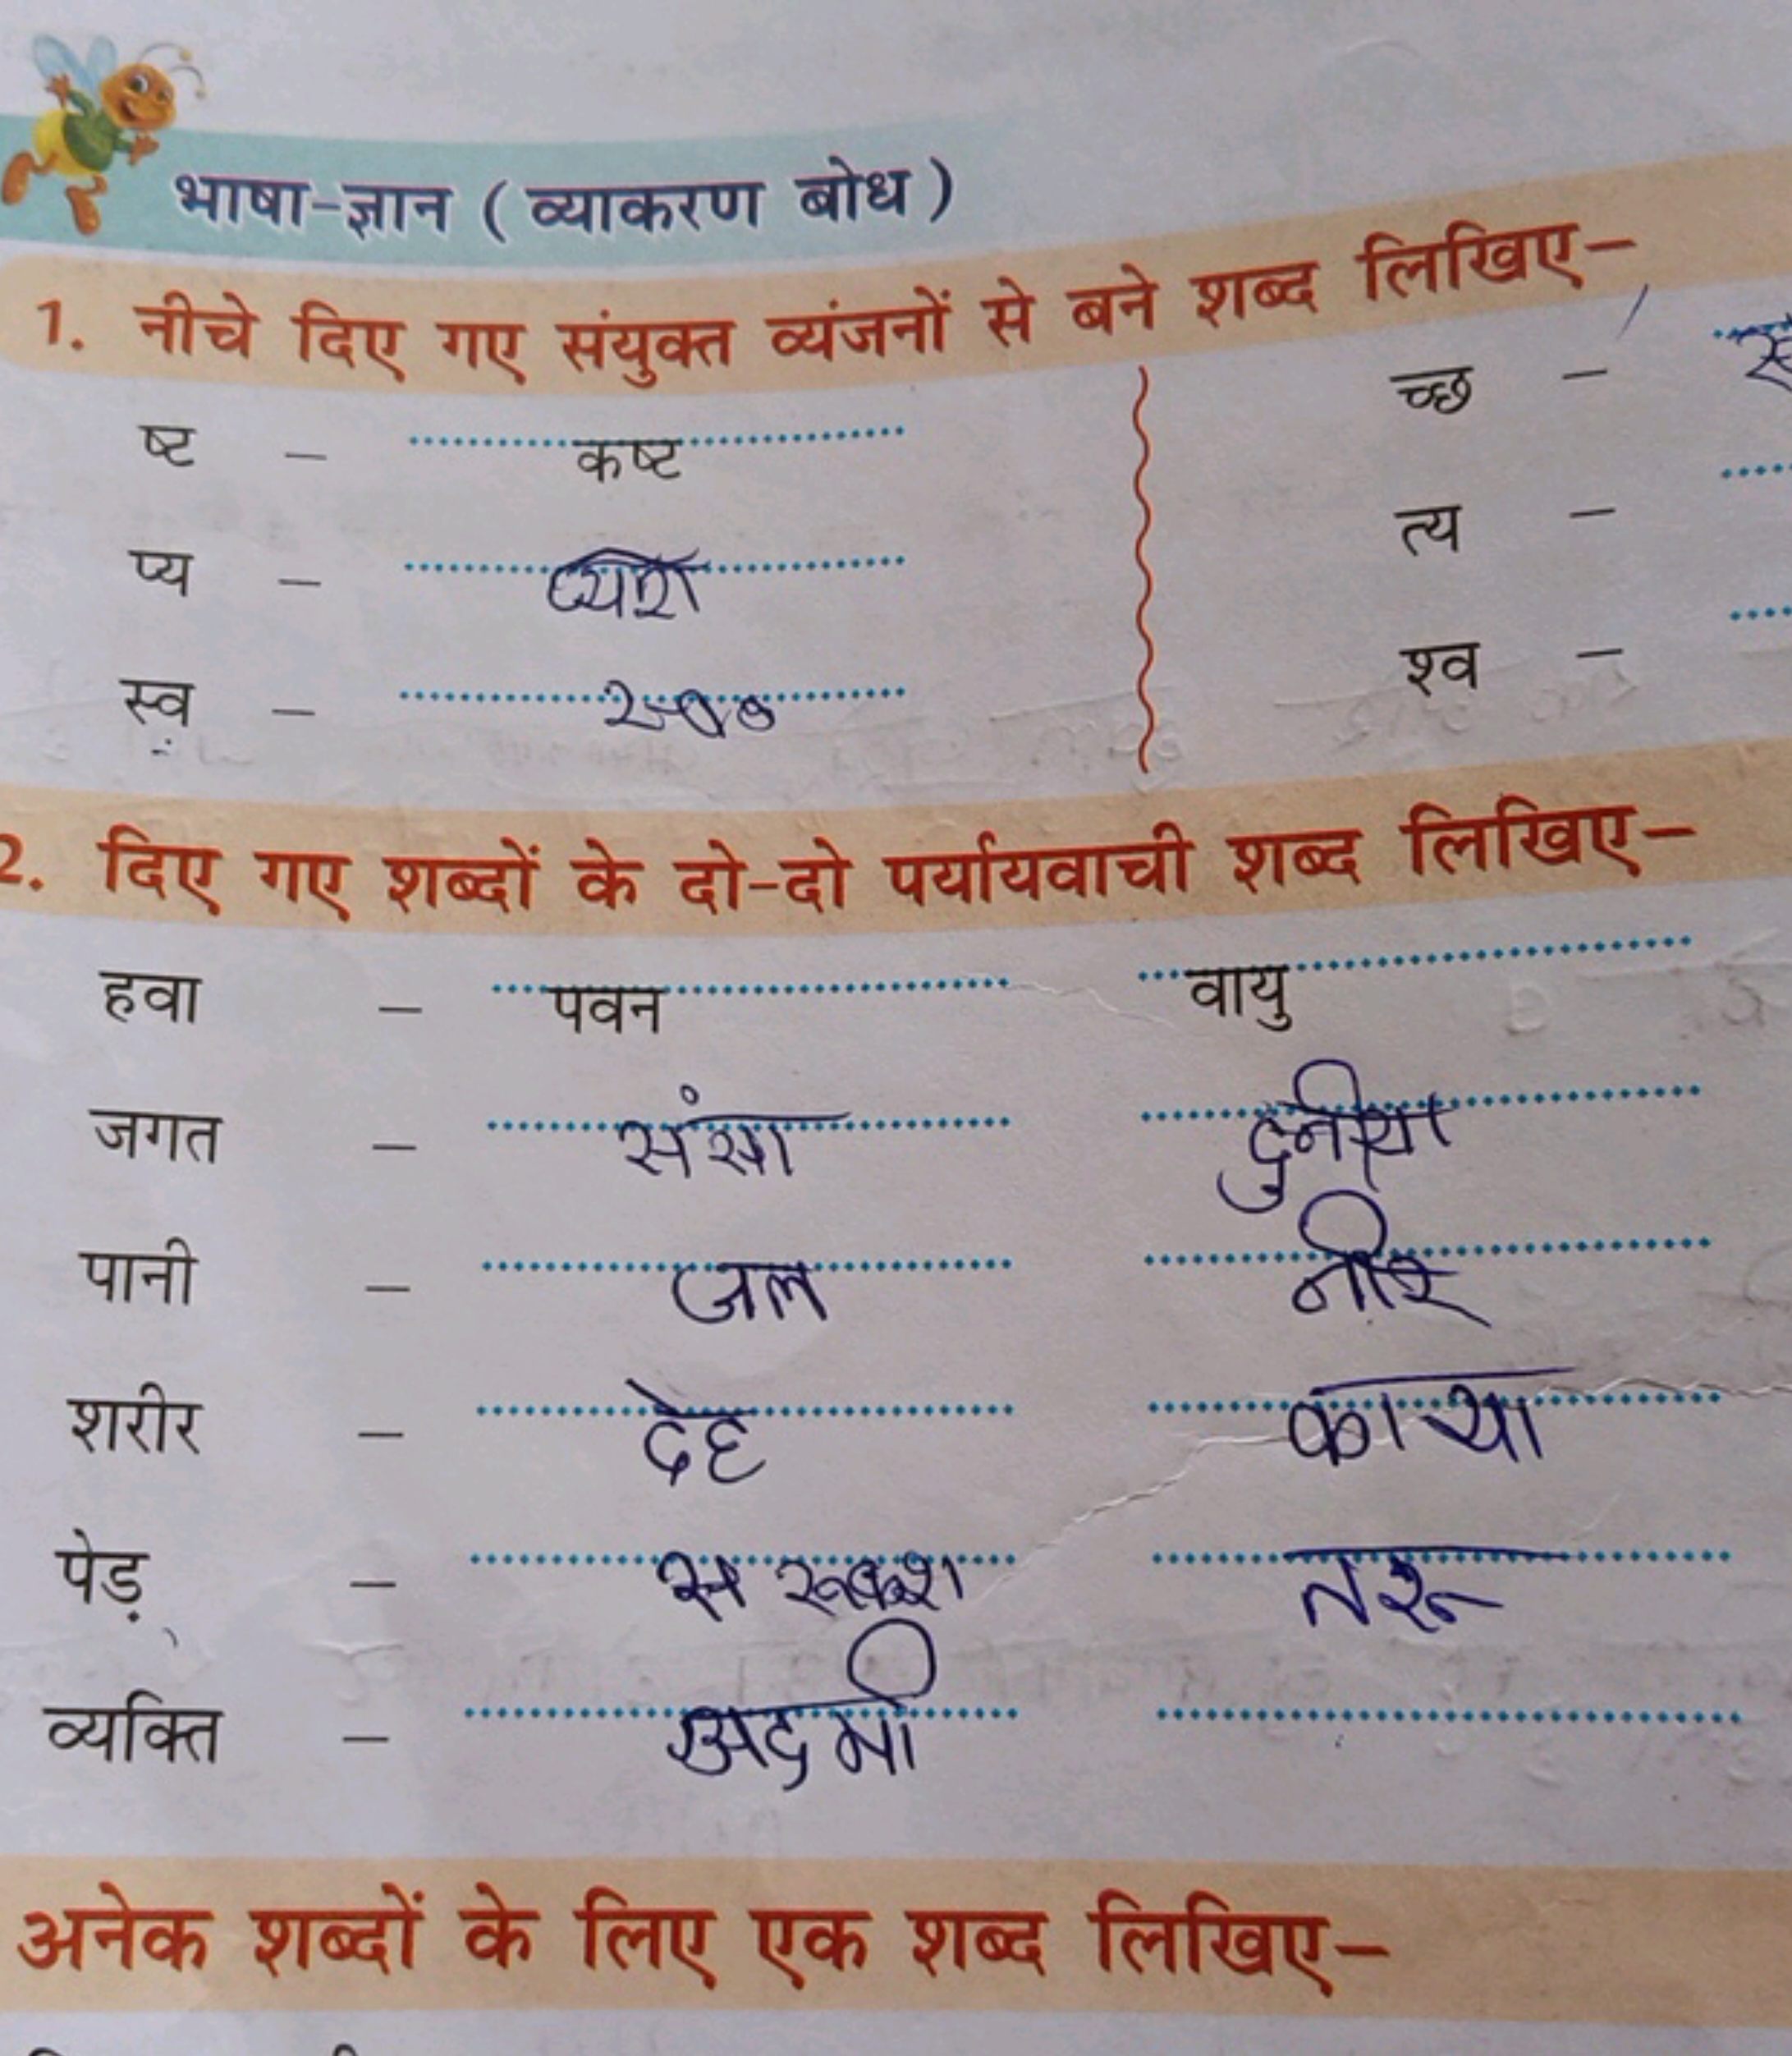 भाषा-ज्ञान ( व्याकरण बोध )
1. नीचे दिए गए संयुक्त व्यंजनों से बने शब्द लिखिए-
ष्ट - कष्ट च्छ -
प्य - त्य -
स्व - श्व -
2. दिए गए शब्दों के दो-दो पर्यायवाची शब्द लिखिए-
हवा - पवन वायु
जगत - संसा दुनीया
पानी - जल नीर
शरीर - देह काया
पेड़ - तरू
व्यक्ति - अदमी
अनेक शब्दों के लिए एक शब्द लिखिए-